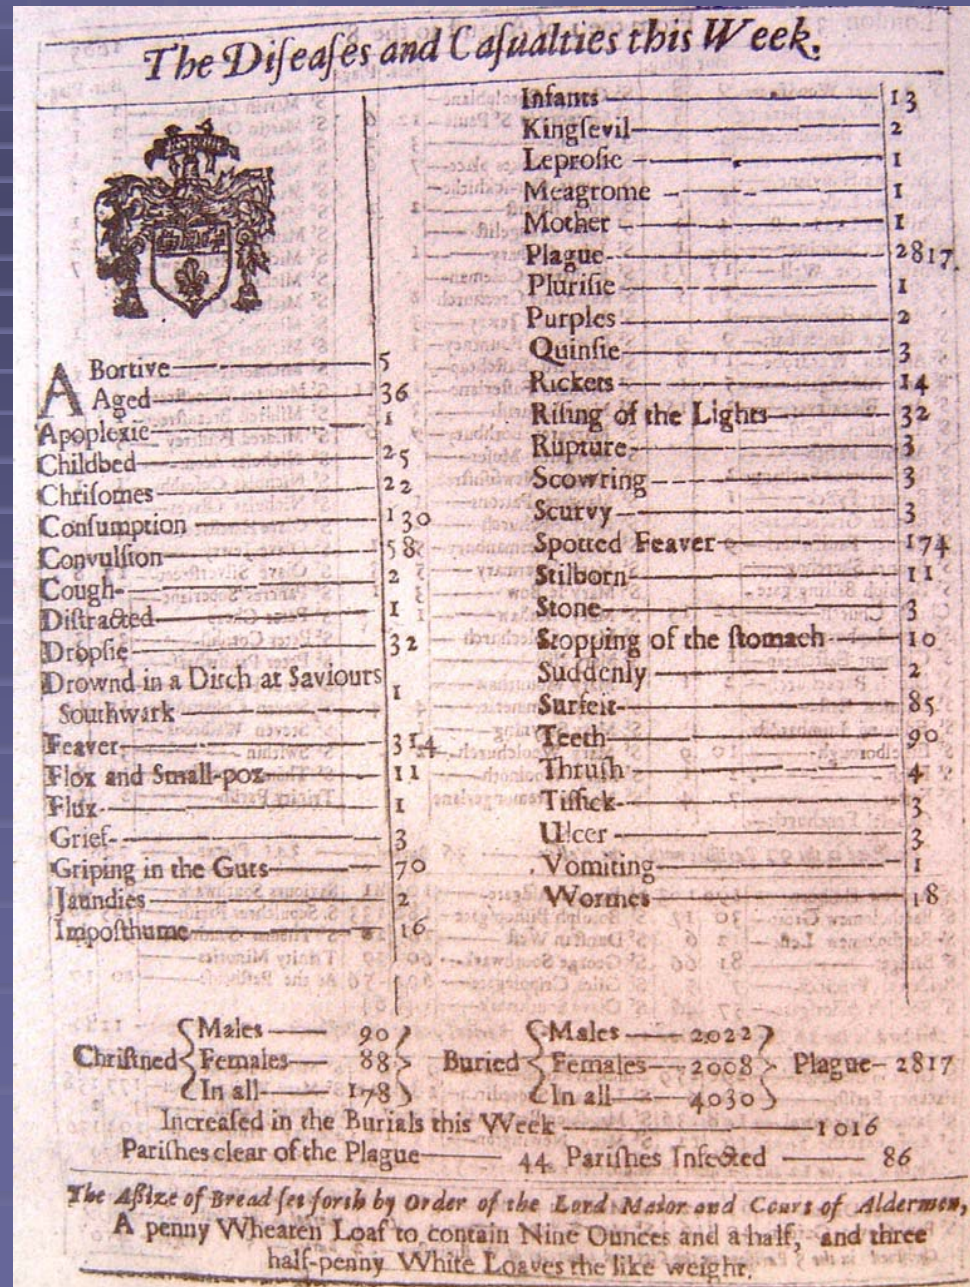 The Diſeaſes and Caſualties this Week.
ABortive 5
Aged 36
Apoplexie 1
Childbed 25
Chriſomes 22
Conſumption 130
Convulſion 58
Cough 2
Diſtracted 1
Dropſie 32
Drownd in a Ditch at Saviours
Southwark 1
Feaver 314
Flox and Small-pox 11
Flux 1
Grief 3
Griping in the Guts 70
Jaundies 2
Impoſthume 16
Infants 13
Kingſevil 2
Leproſie 1
Meagrome 1
Mother 1
Plague 2817
Pluriſie 1
Purples 2
Quinſie 3
Rickets 14
Riſing of the Lights 32
Rupture 3
Scowring 3
Scurvy 3
Spotted Feaver 174
Stilborn 11
Stone 3
Stopping of the ſtomach 10
Suddenly 2
Surfeit 85
Teeth 90
Thruſh 4
Tiſſick 3
Ulcer 3
Vomiting 1
Wormes 18
Chriſtned Males 90 Females 88 In all 178
Buried Males 2022 Females 2008 In all 4030
Plague 2817
Increaſed in the Burials this Week 1016
Pariſhes clear of the Plague 44 Pariſhes Infected 86
The Aſſize of Bread ſet forth by Order of the Lord Maior and Court of Aldermen,
A penny Wheaten Loaf to contain Nine Ounces and a half, and three
half-penny White Loaves the like weight.